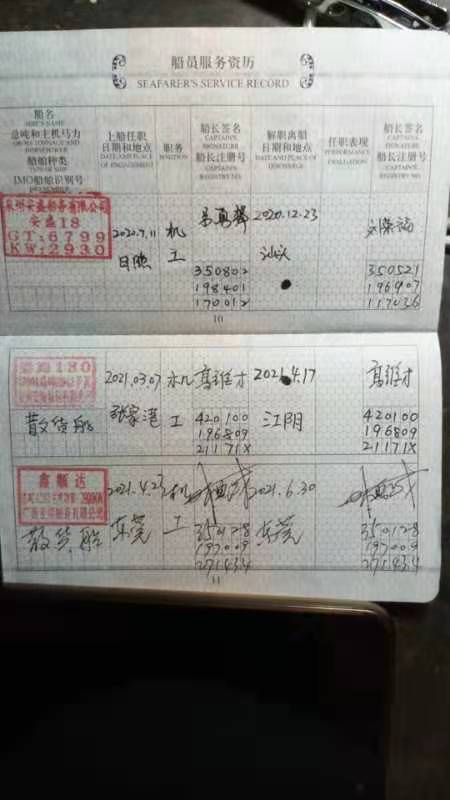 船员服务资历
SEAFARER'S SERVICE RECORD
船名
SHIP'S NAME
总吨和主机马力
船舶种类
TYPE OF SHIP
IMO船舶识别号
上船任职
日期和地点
DATE AND PLACE
OF ENGAGEMENT
职务
船长签名
CAPTAIN'S
SIGNATURE
船长注册号
CAPTAIN'S
REGISTRY NO.
解职离船
日期和地点
DATE AND PLACE OF
DISCHARGE
任职表现
PERFORMANCE
EVALUATION
船长签名
CAPTAIN'S
SIGNATURE
船长注册号
CAPTAIN'S
REGISTRY NO.
安盛18
GT:6799
KW:2930
日照
机
工
350802
198401
170012
2020.12.23
汕头
350521
196907
10
180
散货船
2021.0307
张家港
机
工
高维才
420100
196809
21171X
江阴
高维才
420100
196809
21171X
鑫顺达
散货船
2021.4.23
东莞
机
工
350128
197009
271434
2021.6.30
东莞
350128
197009
271434
11